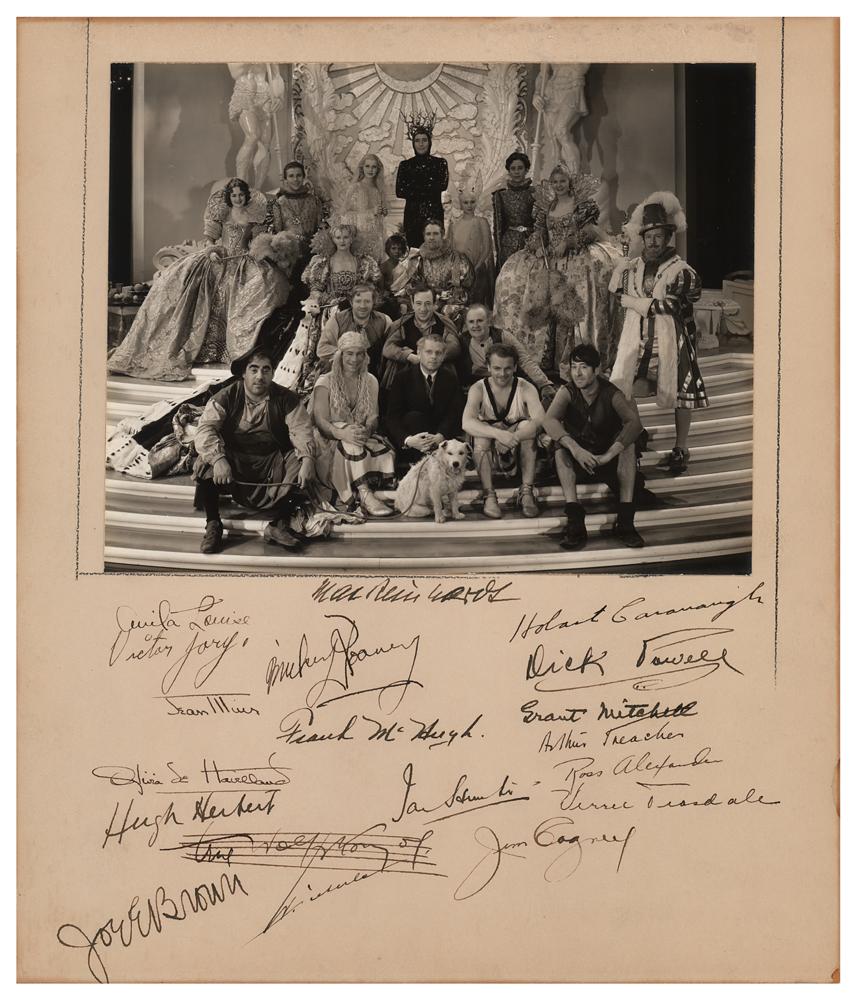 Max Reinhardt
Anita Louise
Victor Jory
Mickey Rooney
Hobart Cavanaugh
Dick Powell
Jean Muir
Frank McHugh.
Grant Mitchell
Arthur Treacher
Ross Alexander
Olivia de Havilland
Hugh Herbert
Verree Teasdale
Erich Wolfgang
Jim Cagney
Joe E Brown